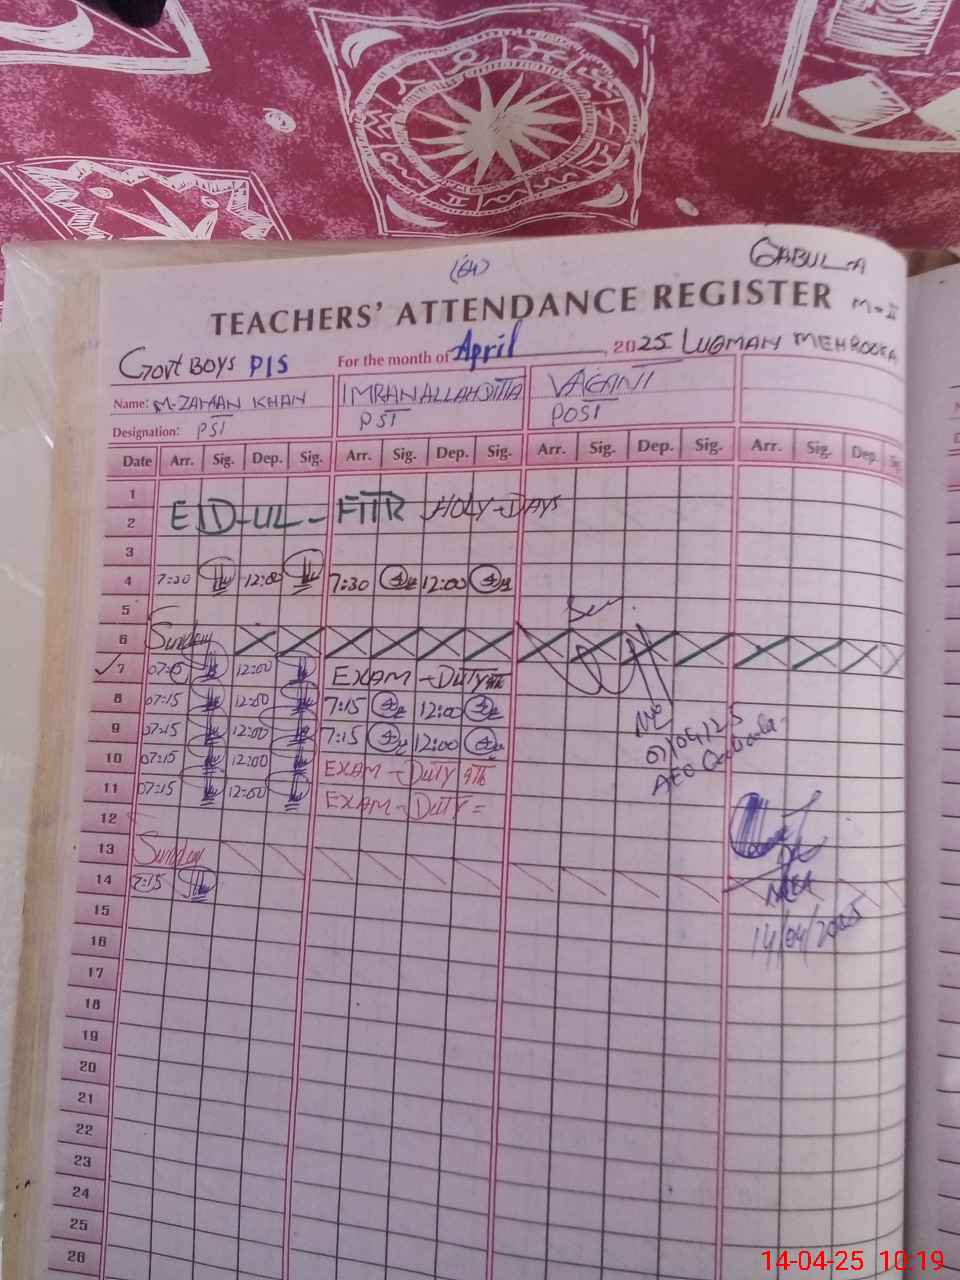 (64)
GABUL-A
TEACHERS' ATTENDANCE REGISTER M-II
Govt BOYS P/S For the month of April, 2025 LUQMAN MEHROOKA
Name: M-ZAMAN KHAN IMRAN ALLAH DITTA VACANT
Designation: PST PST POST
Date Arr. Sig. Dep. Sig. Arr. Sig. Dep. Sig. Arr. Sig. Dep. Sig. Arr. Sig. Dep. Sig.
1
2 EID-UL-FITR HOLY-DAYS
3
4 7:30 12:00 7:30 12:00
5
6 Sunday
7 07:15 12:00 EXAM - DUTY 9th
8 07:15 12:00 7:15 12:00
9 07:15 12:00 7:15 12:00
07/04/25
10 07:15 12:00 EXAM - DUTY 9th
AEO
11 07:15 12:00 EXAM - DUTY =
12
13 Sunday
14 7:15
MEA
15
14/04/2025
16
17
18
19
20
21
22
23
24
25
26
14-04-25 10:19